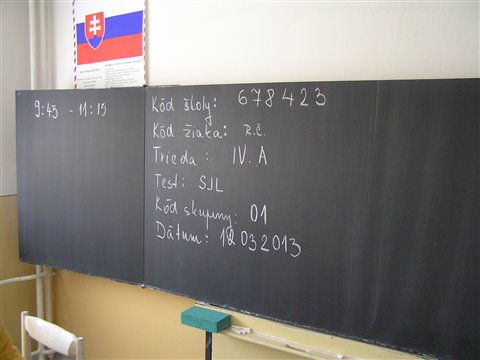 9:45 - 11:15
Kód školy: 678423
Kód žiaka: R.Č.
Trieda: IV. A
Test: SJL
Kód skupiny: 01
Dátum: 12 03 2013